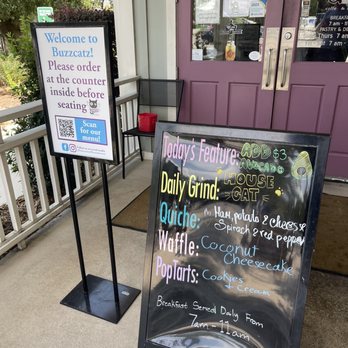 Welcome to
Buzzcatz!
Please order
at the counter
inside before
seating
Scan for
our menu!
Today's Feature: ADD $3
AVOCADO
Daily Grind: HOUSE
CAT
Quiche: Ham, potato & cheese
Spinach & red pepper
Waffle: Coconut
Cheesecake
PopTarts: Cookies
+ Cream
Breakfast Served Daily From
7am - 11am
BREAKFAST
PASTRY &